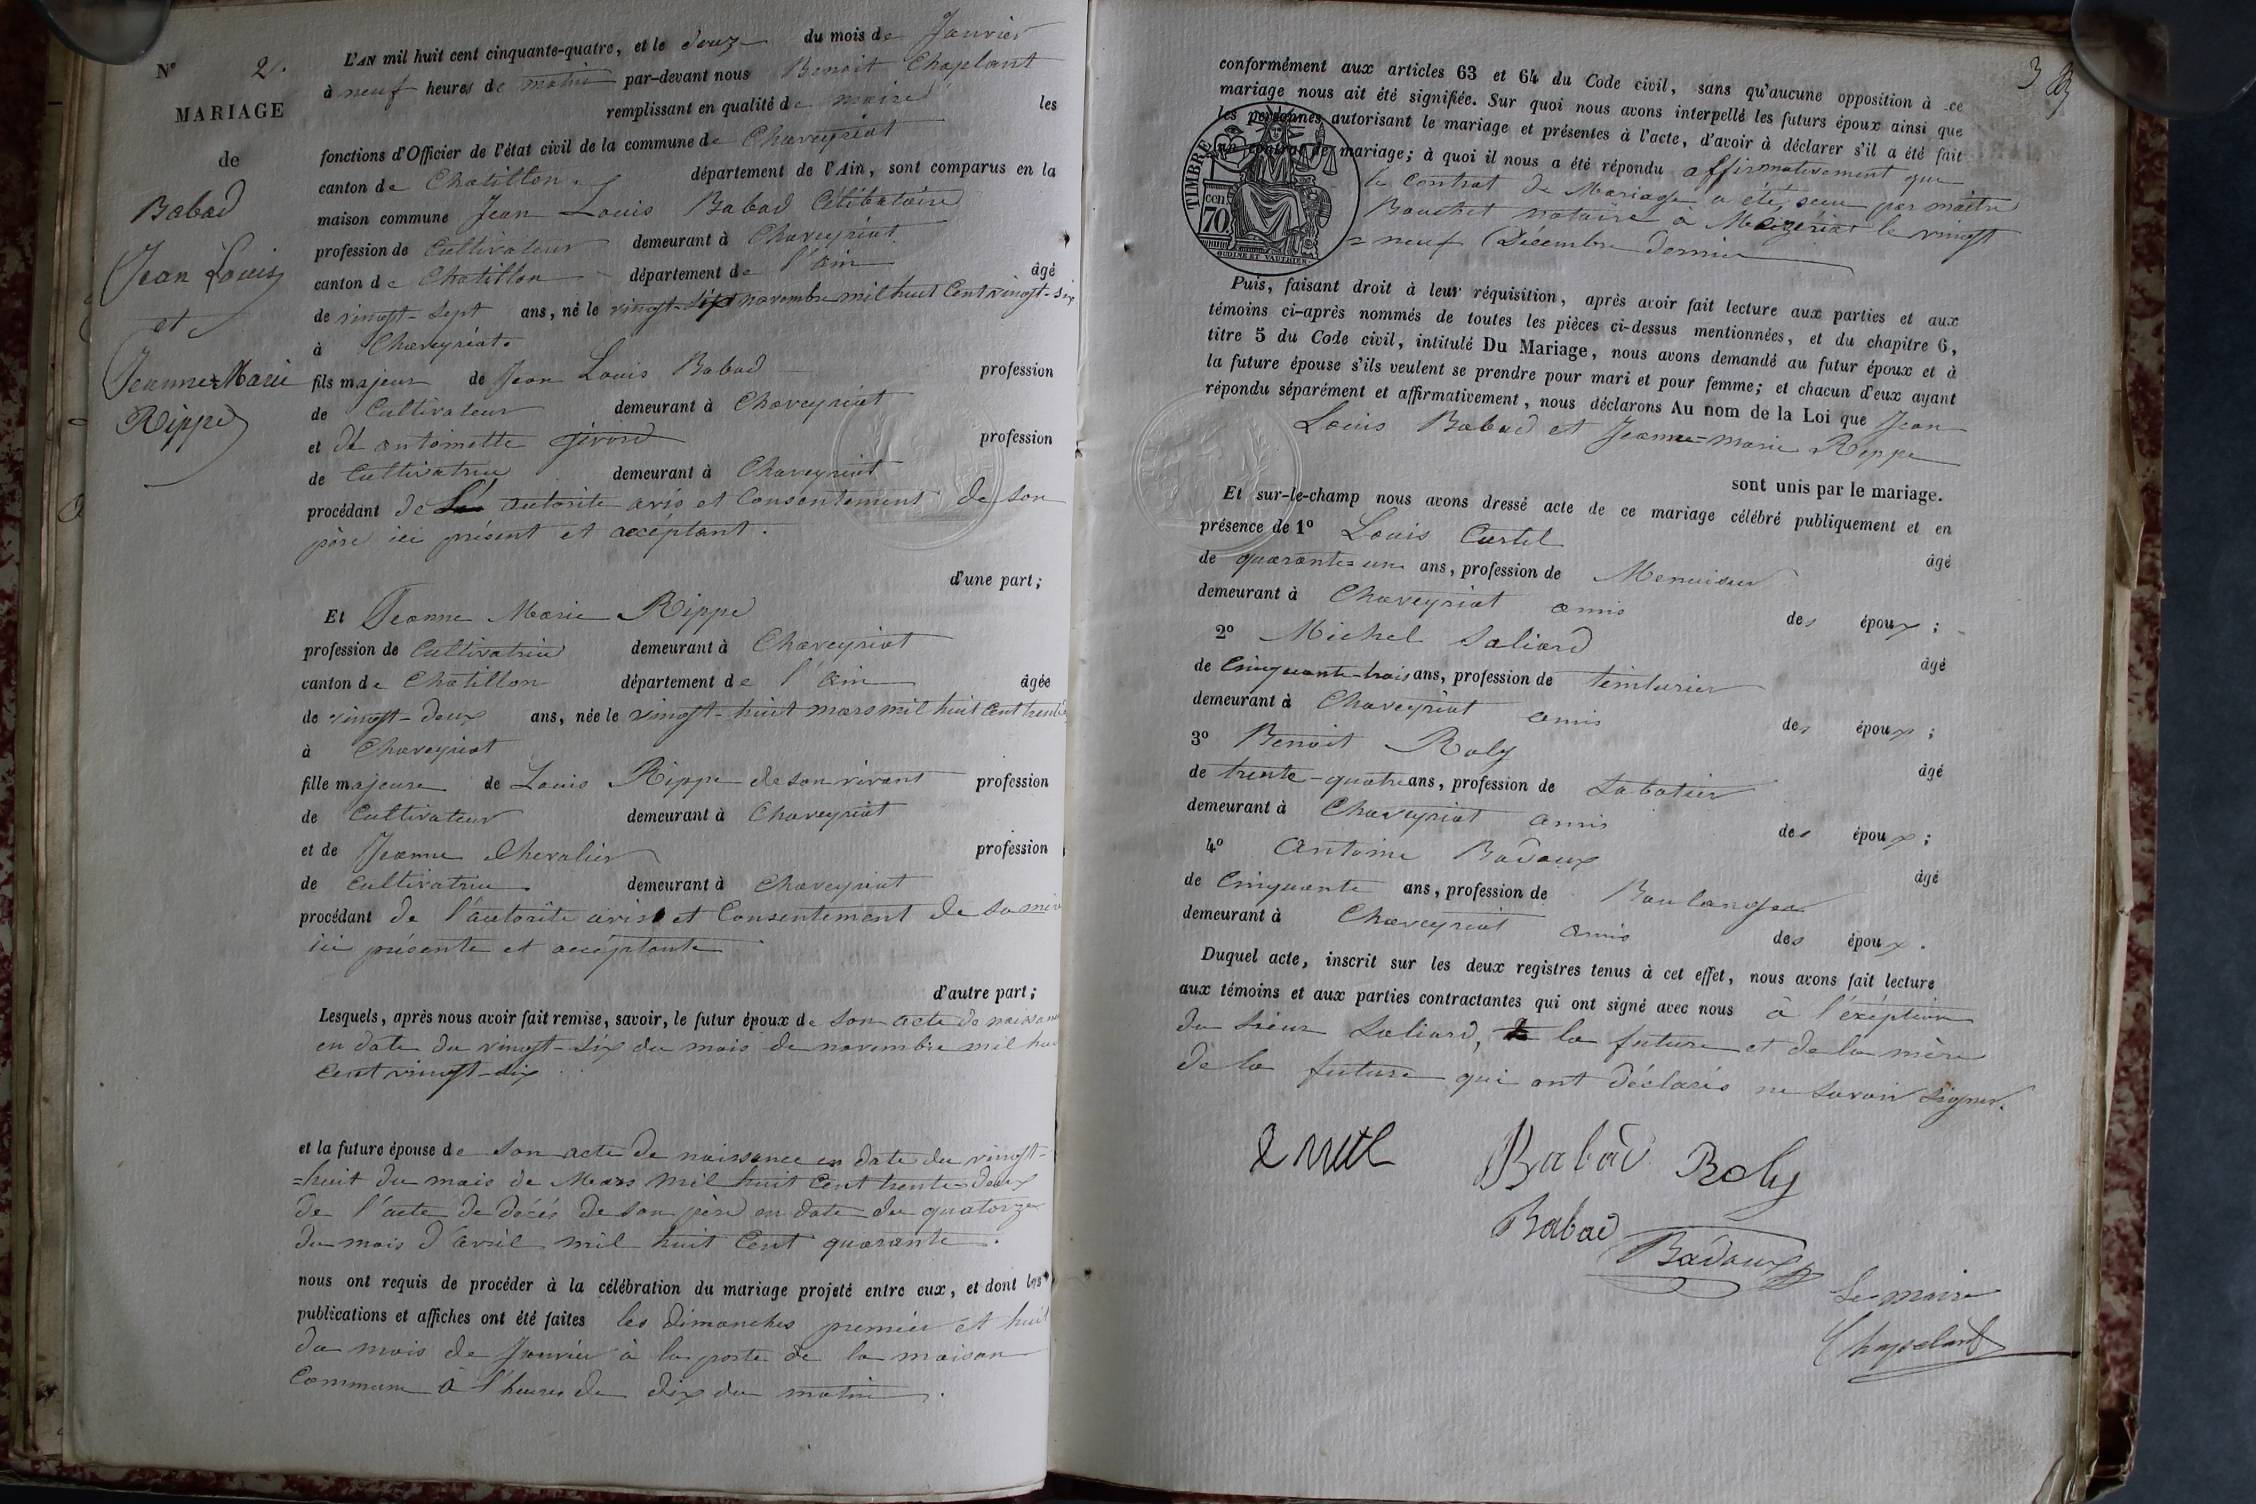 N° 2.
MARIAGE
de
Babad
Jean Louis
et
Jeanne-Marie
Rippe
L'AN mil huit cent cinquante-quatre, et le douze du mois de Janvier
à neuf heures de matin par-devant nous Benoit Chaplant
remplissant en qualité de maire les
fonctions d'Officier de l'état civil de la commune de Chaveyriat
canton de Chatillon département de l'Ain, sont comparus en la
maison commune Jean Louis Babad Célibataire
profession de Cultivateur demeurant à Chaveyriat
canton de Chatillon département de l'ain âgé
de vingt-sept ans, né le vingt-six novembre mil huit Cent vingt-six
à Chaveyriat.
fils majeur de Jean Louis Babad profession
de Cultivateur demeurant à Chaveyriat
et de antoinette profession
de Cultivatrice demeurant à Chaveyriat
procédant de autorite avis et Consentement de son
père ici présent et accéptant.
d'une part;
Et Jeanne Marie Rippe
profession de Cultivatrice demeurant à Chaveyriat
canton de Chatillon département de l'ain âgée
de vingt-deux ans, née le vingt-huit mars mil huit Cent trente
à Chaveyriat
fille majeure de Louis Rippe de son vivant profession
de Cultivateur demeurant à Chaveyriat
et de Jeanne Chevalier profession
de Cultivatrice demeurant à Chaveyriat
procédant de l'autorite avis et Consentement de sa mère
ici présente et accéptante
d'autre part;
Lesquels, après nous avoir fait remise, savoir, le futur époux de son acte de naissance
en date du vingt-six du mois de novembre mil huit
Cent vingt-six
et la future épouse de son acte de naissance en date du vingt-
=huit du mois de Mars mil huit Cent trente-deux
de l'acte de décés de son père en date du quatorze
du mois d'avril mil huit Cent quarante.
nous ont requis de procéder à la célébration du mariage projeté entre eux, et dont les
publications et affiches ont été faites les dimanches premier et huit
du mois de Janvier à la porte de la maison
Commune à l'heure de dix du matin.
3
conformément aux articles 63 et 64 du Code civil, sans qu'aucune opposition à ce
mariage nous ait été signifiée. Sur quoi nous avons interpellé les futurs époux ainsi que
les personnes autorisant le mariage et présentes à l'acte, d'avoir à déclarer s'il a été fait
un contrat de mariage; à quoi il nous a été répondu affirmativement que
le Contrat de Mariage a été reçu par maître
Bouchet notaire à Mezériat le vingt
=neuf Décembre dernier
TIMBRE
70 cen.
OUDINE ET VAUTHIER.
Puis, faisant droit à leur réquisition, après avoir fait lecture aux parties et aux
témoins ci-après nommés de toutes les pièces ci-dessus mentionnées, et du chapitre 6,
titre 5 du Code civil, intitulé Du Mariage, nous avons demandé au futur époux et à
la future épouse s'ils veulent se prendre pour mari et pour femme; et chacun d'eux ayant
répondu séparément et affirmativement, nous déclarons Au nom de la Loi que Jean
Louis Babad et Jeanne=Marie Rippe
sont unis par le mariage.
Et sur-le-champ nous avons dressé acte de ce mariage célébré publiquement et en
présence de 1° Louis Curtil âgé
de quarante=un ans, profession de Menuisier
demeurant à Chaveyriat amis des époux;
2° Michel Saliard âgé
de Cinquante-trois ans, profession de teinturier
demeurant à Chaveyriat amis des époux;
3° Benoit Roly âgé
de trente-quatre ans, profession de Sabotier
demeurant à Chaveyriat amis des époux;
4° Antoine Badoux âgé
de Cinquante ans, profession de Boulanger
demeurant à Chaveyriat amis des époux.
Duquel acte, inscrit sur les deux registres tenus à cet effet, nous avons fait lecture
aux témoins et aux parties contractantes qui ont signé avec nous à l'éxéption
du Sieur Saliard, la future et de la mère
de la future qui ont déclarés ne savoir signer.
Babad Roly
Babad
Badoux
Le maire
Chapelant